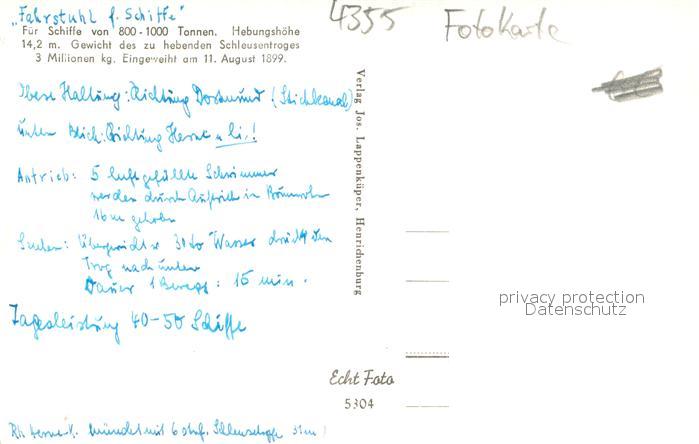 „Fahrstuhl f. Schiffe"
Für Schiffe von 800-1000 Tonnen. Hebungshöhe
14,2 m. Gewicht des zu hebenden Schleusentroges
3 Millionen kg. Eingeweiht am 11. August 1899.
4355 Fotokarte
Obere Haltung: Richtung Dortmund (Stichkanal)
unten Blick: Richtung Herne u. li.!
Antrieb: 5 luftgefüllte Schwimmer
werden durch Auftrieb in
16m gehoben
Senken: Übergewicht 30 to Wasser drückt den
Trog nach unten
Dauer 1 Beweg.: 15 min.
Tagesleistung 40-50 Schiffe
mündet mit 6 Schleusentreppe
Verlag Jos. Lappenküper, Henrichenburg
privacy protection
Datenschutz
Echt Foto
5304